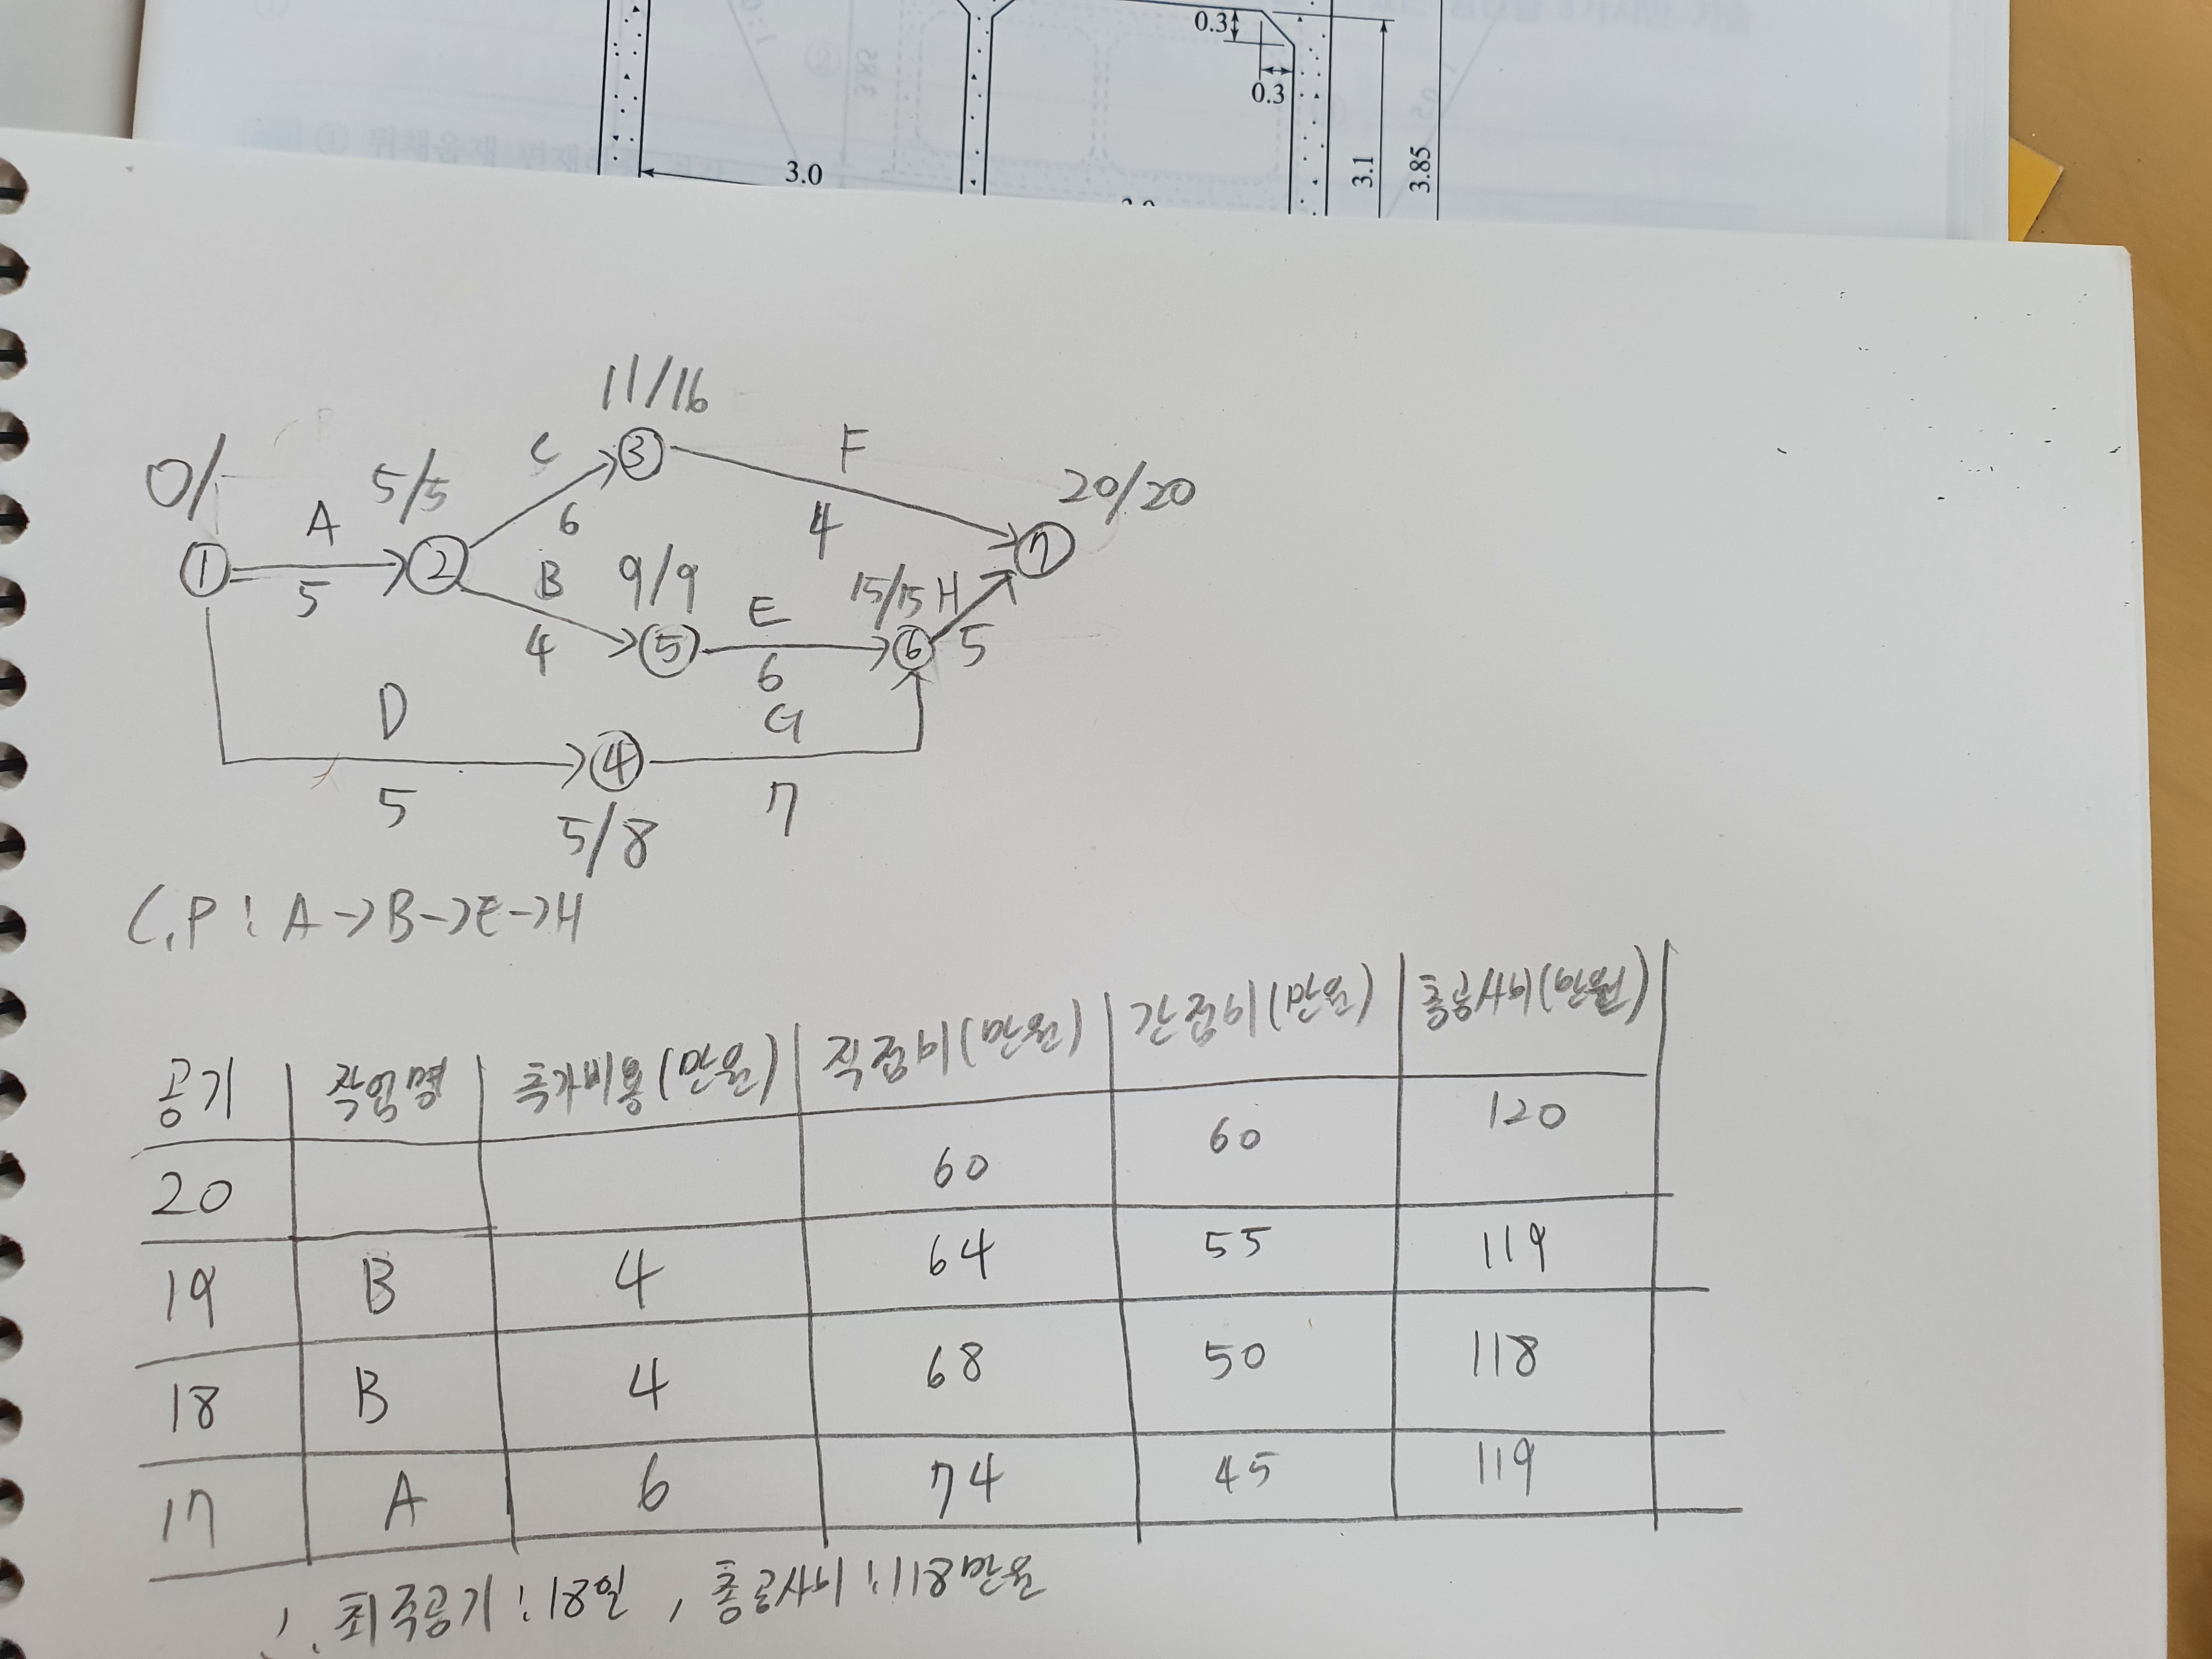 0.3
0.3
3.0
3.1
3.85
11/16
0/
A
5/5
C
③
F
20/20
①
5
②
6
4
⑦
B
9/9
15/15
H
4
⑤
E
6
⑥
5
D
G
④
5
7
5/8
C.P : A→B→E→H
공기 작업명 추가비용(만원) 직접비(만원) 간접비(만원) 총공사비(만원)
20 60 60 120
19 B 4 64 55 119
18 B 4 68 50 118
17 A 6 74 45 119
∴ 최적공기 : 18일 , 총공사비 : 118만원